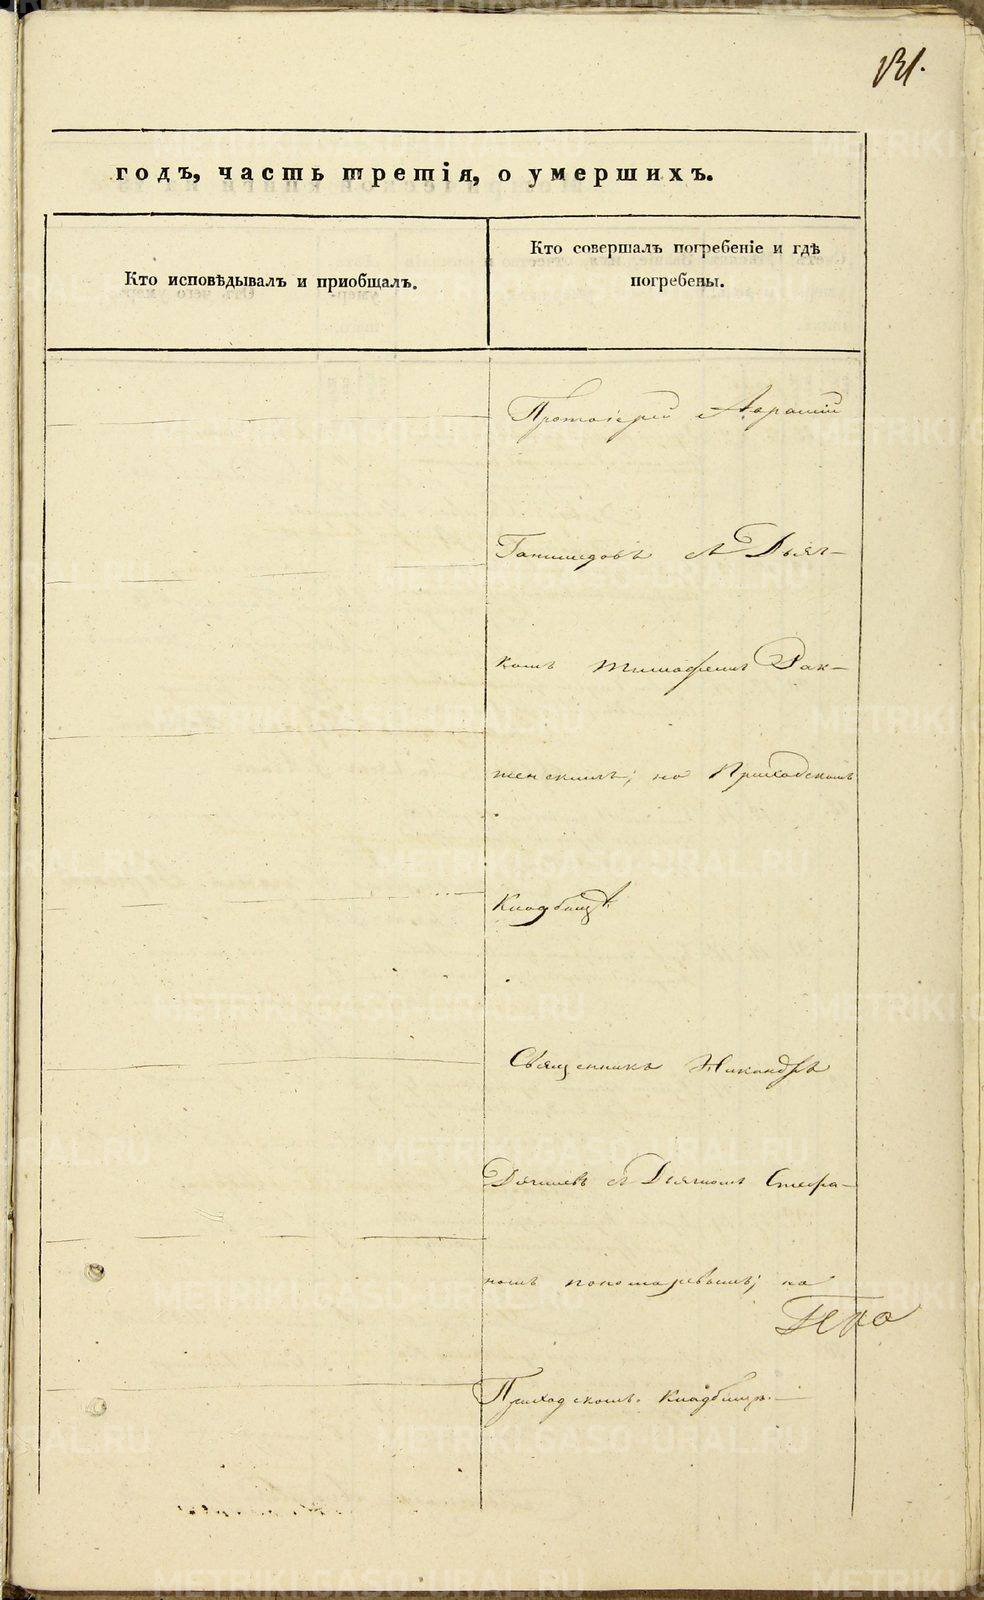 131.
годъ, часть третія, о умершихъ.
Кто исповѣдывалъ и приобщалъ.
Кто совершалъ погребеніе и гдѣ
погребены.
Протоіерей
съ Дьяч-
комъ Тимофеемъ Рак-
на Приходскомъ
Кладбищѣ.
Священникъ Никандръ
съ Дьячкомъ Стефа-
номъ Пономаревымъ; на
Приходскомъ Кладбищѣ.
METRIKI.GASO-URAL.RU